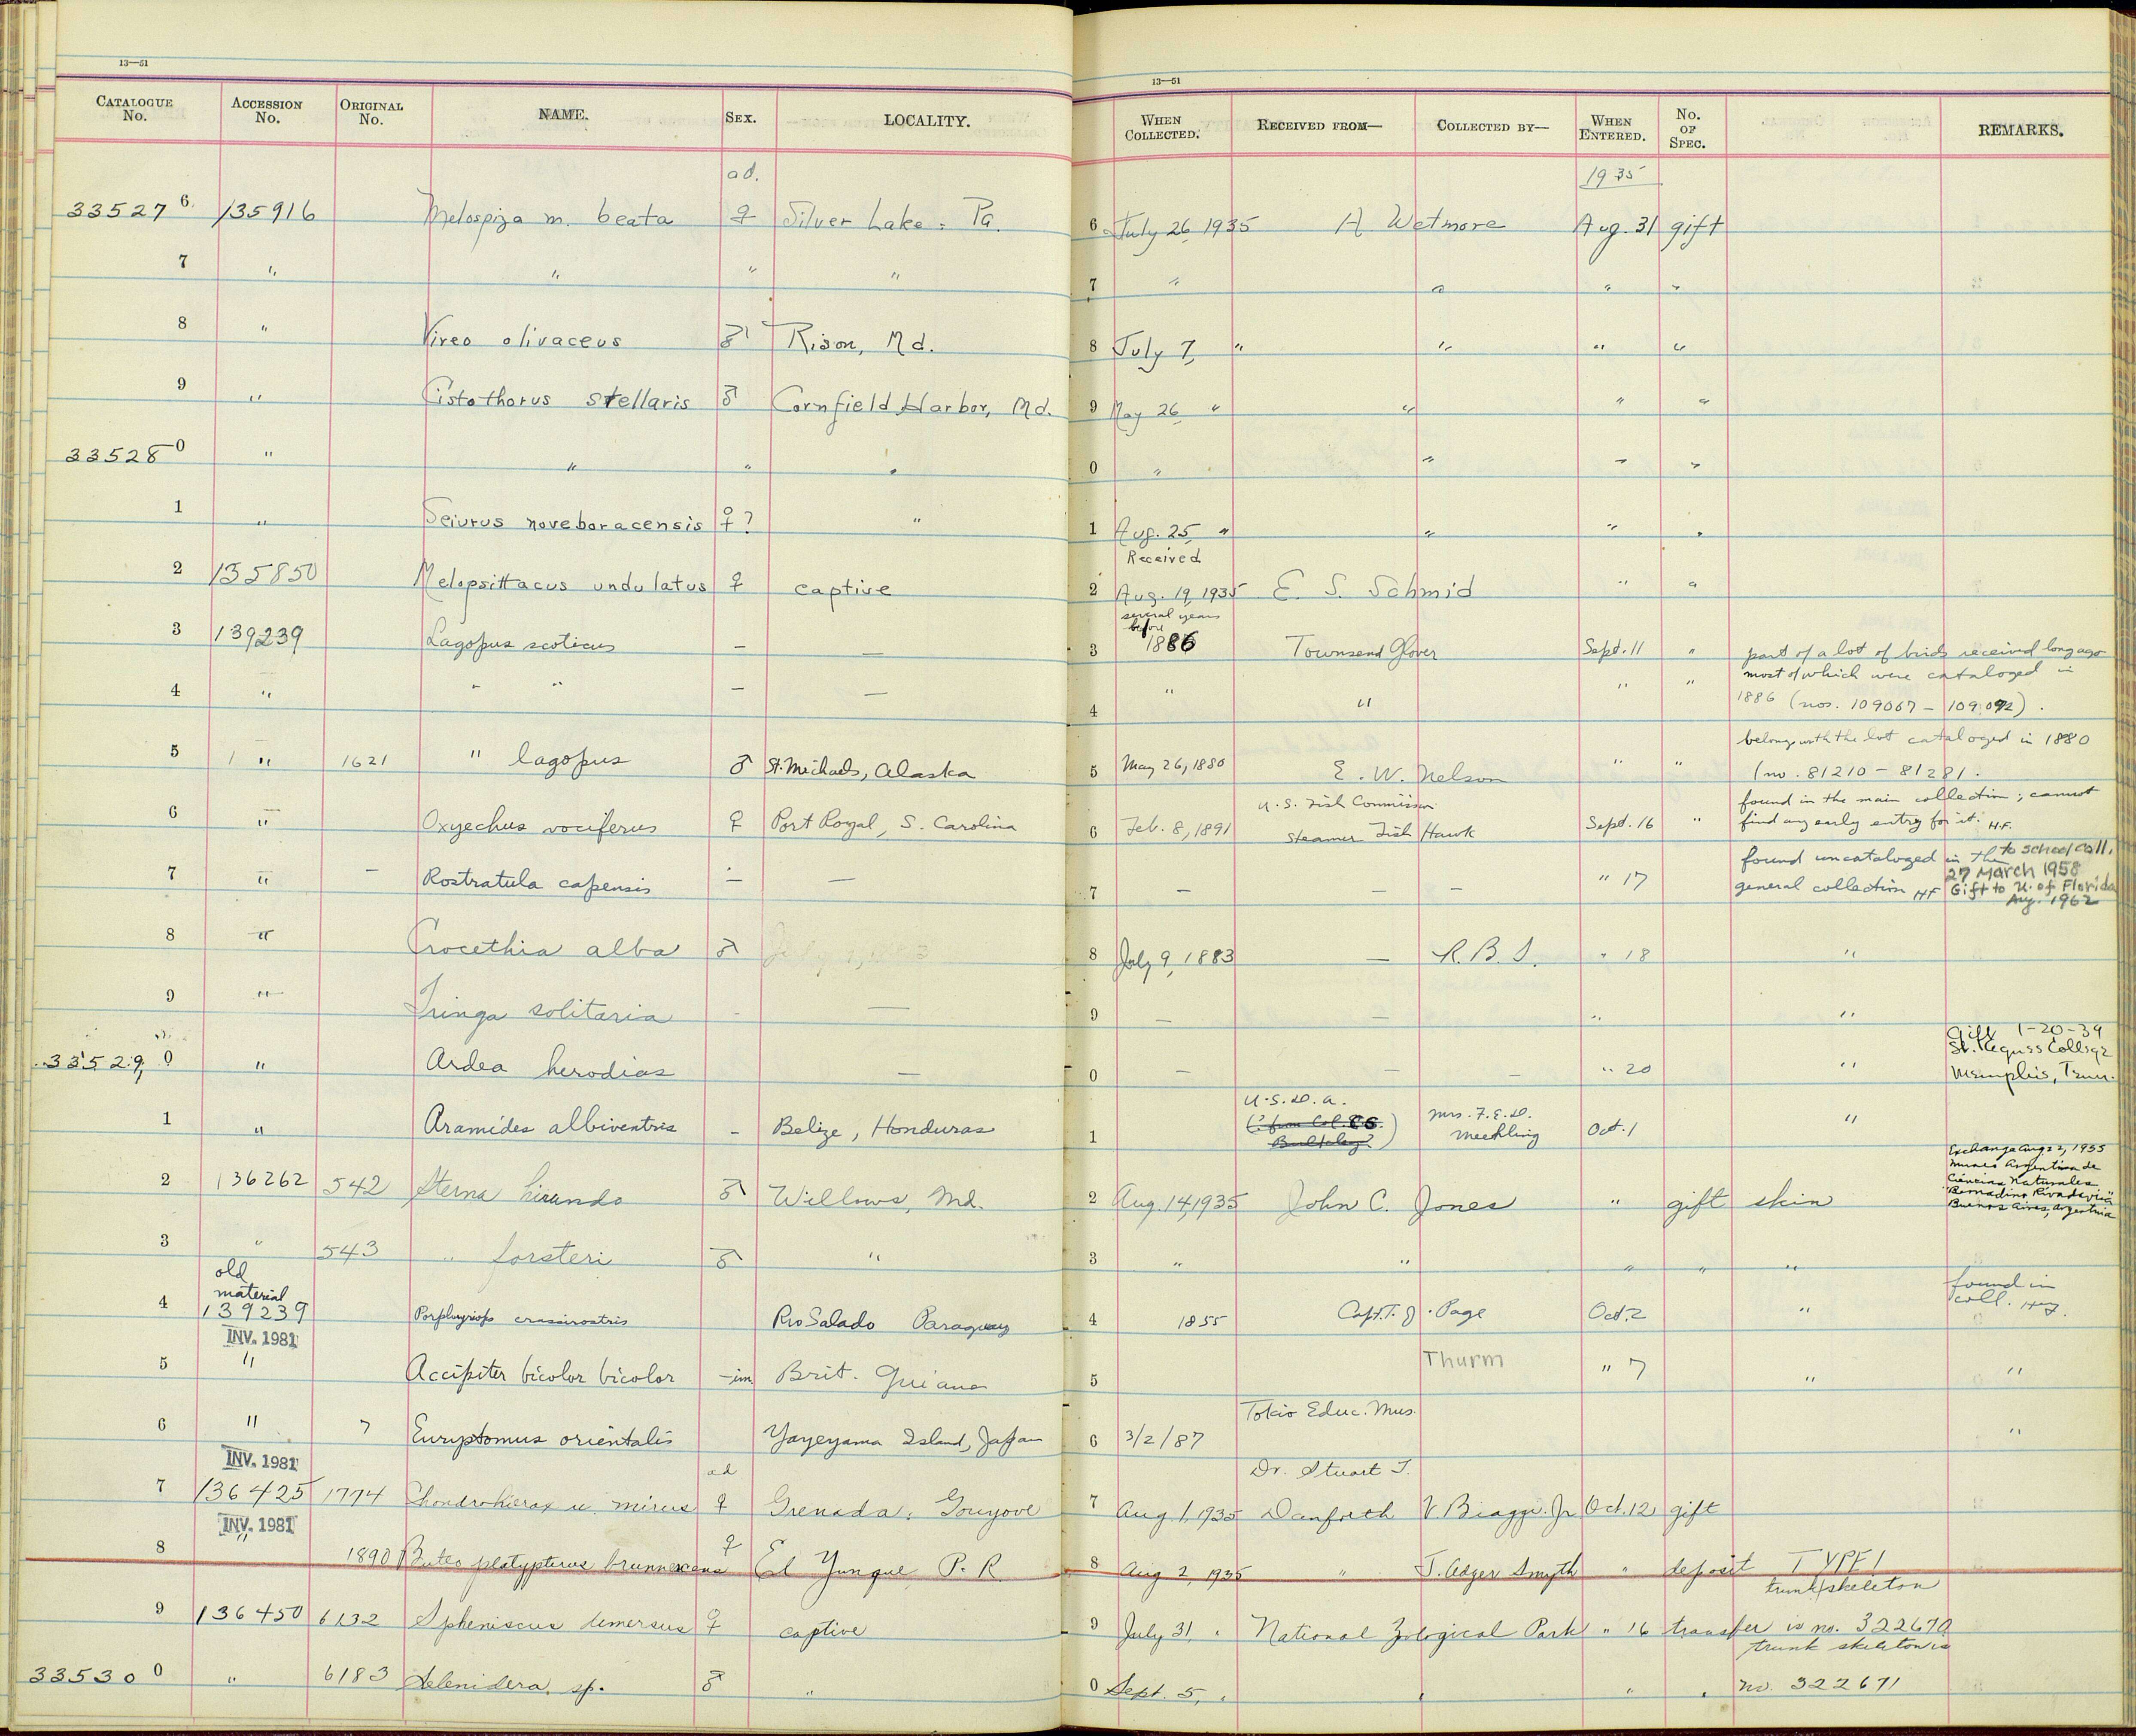 13—51
13—51
CATALOGUE No. ACCESSION No. ORIGINAL No. NAME. SEX. LOCALITY. WHEN COLLECTED. RECEIVED FROM— COLLECTED BY— WHEN ENTERED. No. OF SPEC. REMARKS.
ad. 1935
33527 6 135916 Melospiza m. beata ♀ Silver Lake: Pa. 6 July 26, 1935 A Wetmore Aug. 31 gift
7 " " " " 7 " " " "
8 " Vireo olivaceus ♂ Rison, Md. 8 July 7, " " " "
9 " Cistothorus stellaris ♂ Cornfield Harbor, Md. 9 May 26 " " " "
33528 0 " " " " 0 " " " "
1 " Seiurus noveboracensis ♀? " 1 Aug. 25, " " " "
Received
2 135850 Melopsittacus undulatus ♀ captive 2 Aug. 19, 1935 E. S. Schmid " "
several years
before
3 139239 Lagopus scoticus — — 3 1886 Townsend Glover Sept. 11 " part of a lot of birds received long ago
4 " " " — — 4 " " " " most of which were cataloged in
1886 (nos. 109067 – 109092).
belongs with the lot cataloged in 1880
5 " 1621 " lagopus ♂ St. Michaels, Alaska 5 May 26, 1880 E. W. Nelson " " (no. 81210 – 81281.
U.S. Fish Commission found in the main collection; cannot
6 " Oxyechus vociferus ♀ Port Royal, S. Carolina 6 Feb. 8, 1891 Steamer Fish Hawk Sept. 16 " find any early entry for it. H.F.
7 " — Rostratula capensis — — 7 — — — " 17 found uncataloged in the
general collection HF
to school coll.
27 March 1958
Gift to U. of Florida
Aug. 1962
8 " Crocethia alba ♂ 8 July 9, 1883 — " 18 "
9 " Tringa solitaria — 9 — — " "
33529 0 " Ardea herodias — 0 — — — " 20 "
Gift 1-20-39
College
Memphis, Tenn.
U.S.D.A.
1 " Aramides albiventris - Belize, Honduras 1 Mrs. F.E.D. Meckling Oct. 1 "
2 136262 542 Sterna hirundo ♂ Willows, Md. 2 Aug. 14, 1935 John C. Jones " gift skin
Exchange Aug 22, 1955
Museo Argentina de
Ciencias Naturales
"Bernadino Rivadavia"
Buenos Aires, Argentina
3 " 543 " forsteri ♂ " 3 " " " " "
old
material
4 139239 Porphyriops crassirostris Rio Salado Paraguay 4 1855 Capt. T. J. Page Oct. 2 " found in
coll.
INV. 1981
5 " Accipiter bicolor bicolor - im. Brit. Guiana 5 Thurm " 7 " "
6 " 7 Eurystomus orientalis Yayeyama Island, Japan 6 3/2/87 Tokio Educ. Mus. "
INV. 1981
ad Dr. Stuart T.
7 136425 1774 Chondrohierax u. mirus ♀ Grenada: Gouyave 7 Aug 1, 1935 Danforth V. Biaggi. Jr Oct. 12 gift
INV. 1981
8 " 1890 Buteo platypterus brunnescens ♀ El Yunque, P. R. 8 Aug 2, 1935 " J. Adger Smyth " deposit TYPE!
trunk skeleton
9 136450 6132 Spheniscus demersus ♀ captive 9 July 31, " National Zoological Park " 16 transfer is no. 322670
trunk skeleton is
33530 0 " 6183 Selenidera sp. ♂ " 0 Sept. 5, " " " no. 322671